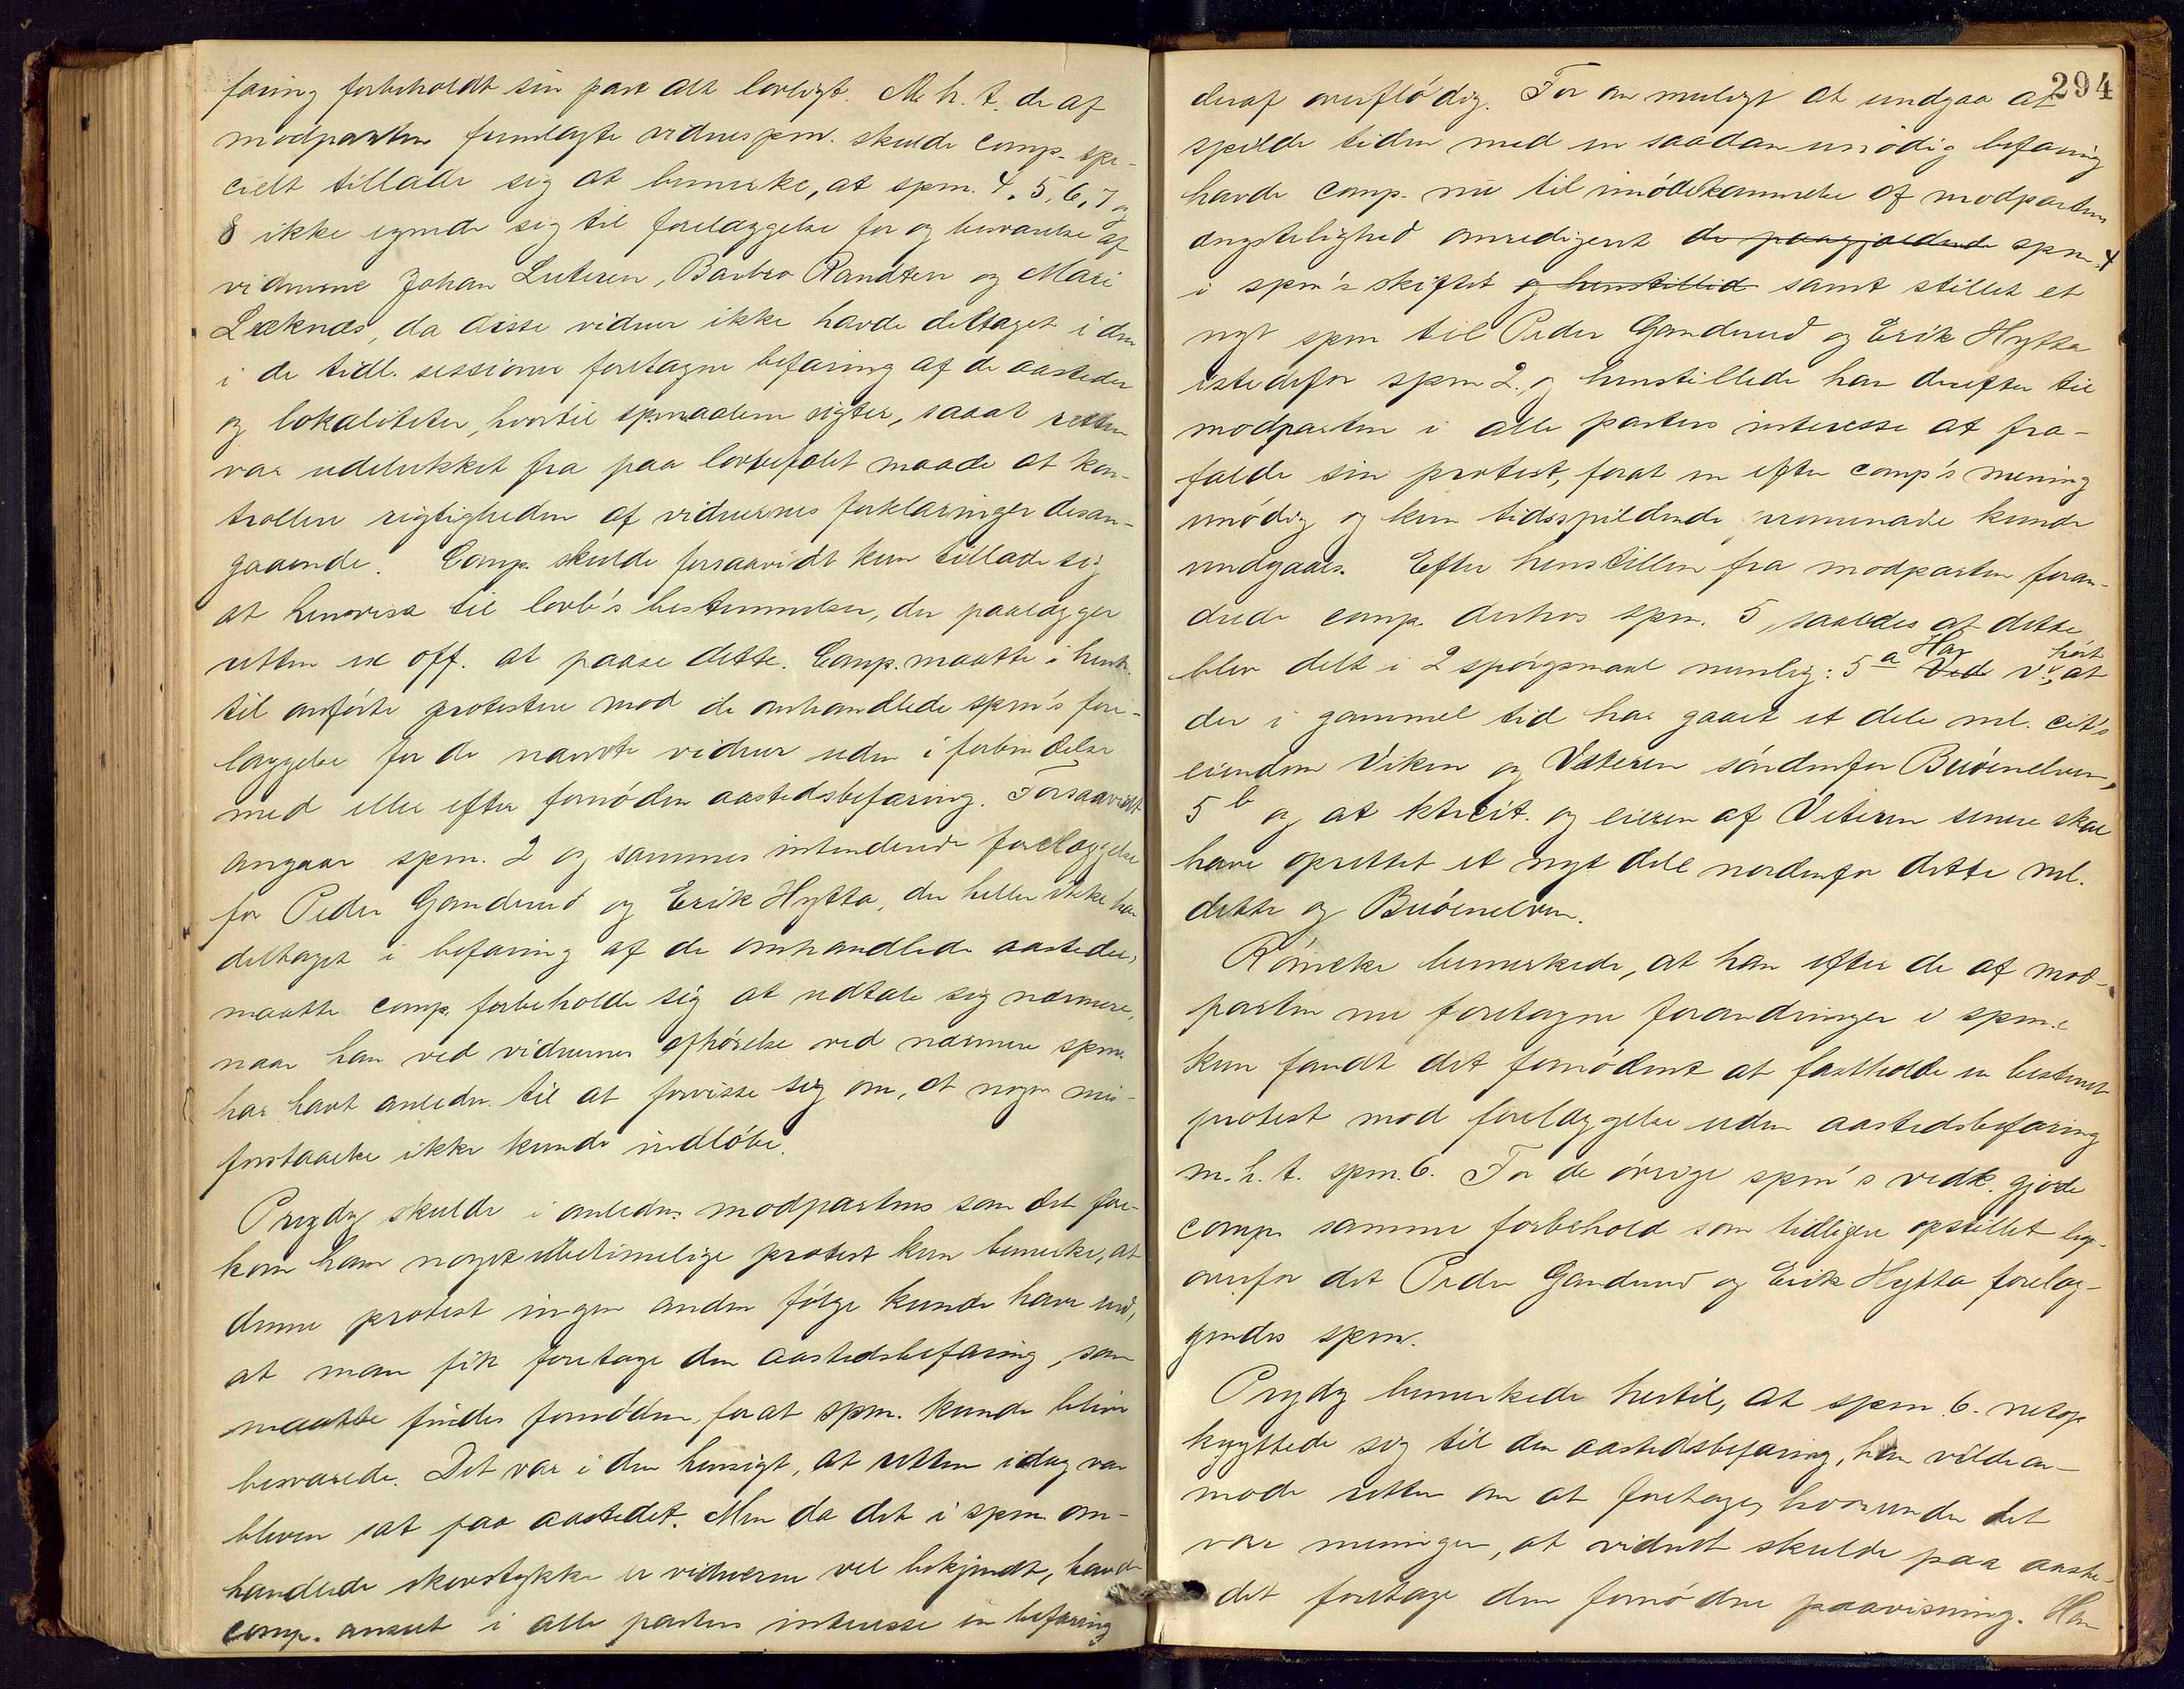 faring forbeholdt sin part alt lovligt. M. h. t. de af
modparten fremlagte vidnespm. skulde comp. spe-
cielt tillade sig at bemærke, at spm. 4, 5, 6, 7 og
8 ikke egnede sig til forelæggelse for og besvarelse af
vidnerne Johan Luteren, Barbro Randten og Mari
Læknæs, da disse vidner ikke havde deltaget i den
i de tidl. sessioner foretagne befaring af de aasteder
og lokaliteter, hvortil spmaalene sigter, saaat retten
var udelukket fra paa lovbefalet maade at kon-
trollere rigtigheden af vidnernes forklaringer desan-
gaaende. Comp. skulde forsaavidt kun tillade sig
at henvise til lovb's bestemmelser, der paalægger
retten ex off. at paase dette. Comp. maatte i henh.
til anførte protestere mod de omhandlede spm's fore-
læggelse for de nævnte vidner uden i forbindelse
med eller efter fornøden aastedsbefaring. Forsaavidt
angaar spm. 2 og sammes intenderede forelæggelse
for Peder Ganderud og Erik Hytta, der heller ikke har
deltaget i befaring af de omhandlede aasteder,
maatte comp. forbeholde sig at udtale sig nærmere,
naar han ved vidnernes afhørelse ved nærmere spm.
har havt anledn. til at forvisse sig om, at nogen mis-
forstaaelse ikke kunde indløbe.
Prydz skulde i anledn. modpartens som det fore-
kom ham noget ubetimelige protest kun bemerke, at
denne protest ingen anden følge kunde have end,
at man fik foretage den aastedsbefaring, som
maatte findes fornøden, forat spm. kunde blive
besvarede. Det var i den hensigt, at retten idag var
bleven sat paa aastedet. Men da det i spm. om-
handlede skovstykke er vidnerne vel bekjendt, havde
comp. anseet i alle parters interesse en befaring
294
deraf overflødig. For om muligt at undgaa at
spilde tiden med en saadan unødig befaring
havde comp. nu til imødekommelse af modpartens
ængstelighed omredigeret de paagjældende spm. 4
i spm's skiftet og henstillid samt stillet et
nyt spm til Peder Ganderud og Erik Hytta
istedefor spm 2, og henstillede han derefter til
modparten i alle parters interesse at fra-
falde sin protest, forat en efter comp's mening
unødig og kun tidsspildende promenade kunde
undgaaes. Efter henstillen fra modparten foran-
drede comp. derhos spm. 5, saaledes at dette
blev delt i 2 spørgsmaal nemlig: 5 a Ved Har v. hørt, at
der i gammel tid har gaaet et dele ml. cit's
eiendom Viken og Væteren søndenfor Buøienelven,
5 b og at ktrcit. og eieren af Veteren senere skal
have oprettet et nyt dele nordenfor dette ml.
dette og Buøienelven.
Rømcke bemerkede, at han efter de af mod-
parten nu foretagne forandringer i spm.e
kun fandt det fornødent at fastholde en bestemt
protest mod forelæggelse uden aastedsbefaring
m. h. t. spm. 6. For de øvrige spm's vedk. gjorde
comp. samme forbehold som tidligere opstillet lige-
overfor det Peder Ganderud og Erik Hytta forelæg-
gendes spm.
Prydz bemerkede hertil, at spm 6. netop
knyttede sig til den aastedsbefaring, han vilde an-
mode retten om at foretage, hvorunder det
var meningen, at vidnet skulde paa aaste-
det foretage den fornødne paavisning. Han